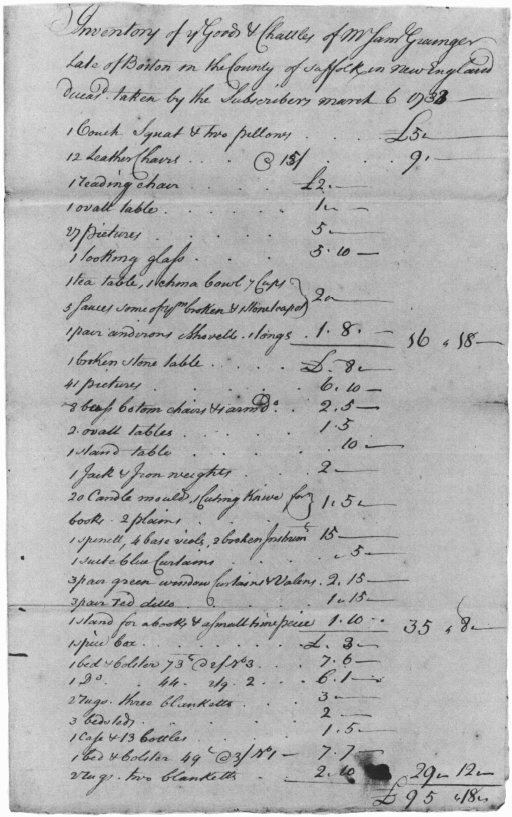 Inventory of yᵉ Goods & Chattles of Mʳ Samˡ Grainger
Late of Boston in the County of Suffolk, in New England
deceasᵈ. taken by the Subscribers March 6 1733
1 Couch Squat & two pillows . . . £5.—
12 Leather Chairs . . . @ 15/ . . 9.—
1 reading chair . . . £2.—
1 ovall table . . . . . 1.—
27 pictures . . . . 5 —
1 looking glass . . . . 5.10 —
1 tea table, 1 china bowl 7 Cups
3 Sauces some of yᵐ broken & 1 Stone teapot } 2.—
1 pair andirons Shovell & tongs . 1.8.— 16.18 —
1 broken stone table . . . . £.8.—
41 pictures . . . . . 6.10 —
8 bass botom chairs & 1 armᵈ Dº . . 2.5 —
2 ovall tables . . . . . 1.5
1 stand table . . . . .10 —
1 Jack & Iron weights . . . 2 —
20 Candle moulds, 1 Cuting Knive for } 1.5.—
books. 2 plains
1 spinett, 4 base viols, 2 broken Instrumᵗ 15 —
1 suite blue Curtains . . . . .5 —
3 pair green window Curtains & Valens. 2.15 —
3 pair red ditto . . . . . 1.15 —
1 stand for a books & a small time piece 1.10 — 35.8.—
1 spice box . . . . . £.3.—
1 bed & bolster 73ˡ @ 2/ Nº 3 . . . 7.6 —
1 Dº . . 44. . 2/9. 2 . . . 6.1 —
2 rugs. three blanketts . . . 3 —
3 bedsteds . . . . . 2 —
1 Case & 13 bottles . . . . 1.5 —
1 bed & bolster 49ˡ @ 3/ Nº 1 — 7.7 —
2 rugs. two blanketts . . . 2.10 29.12.—
£95.18.—